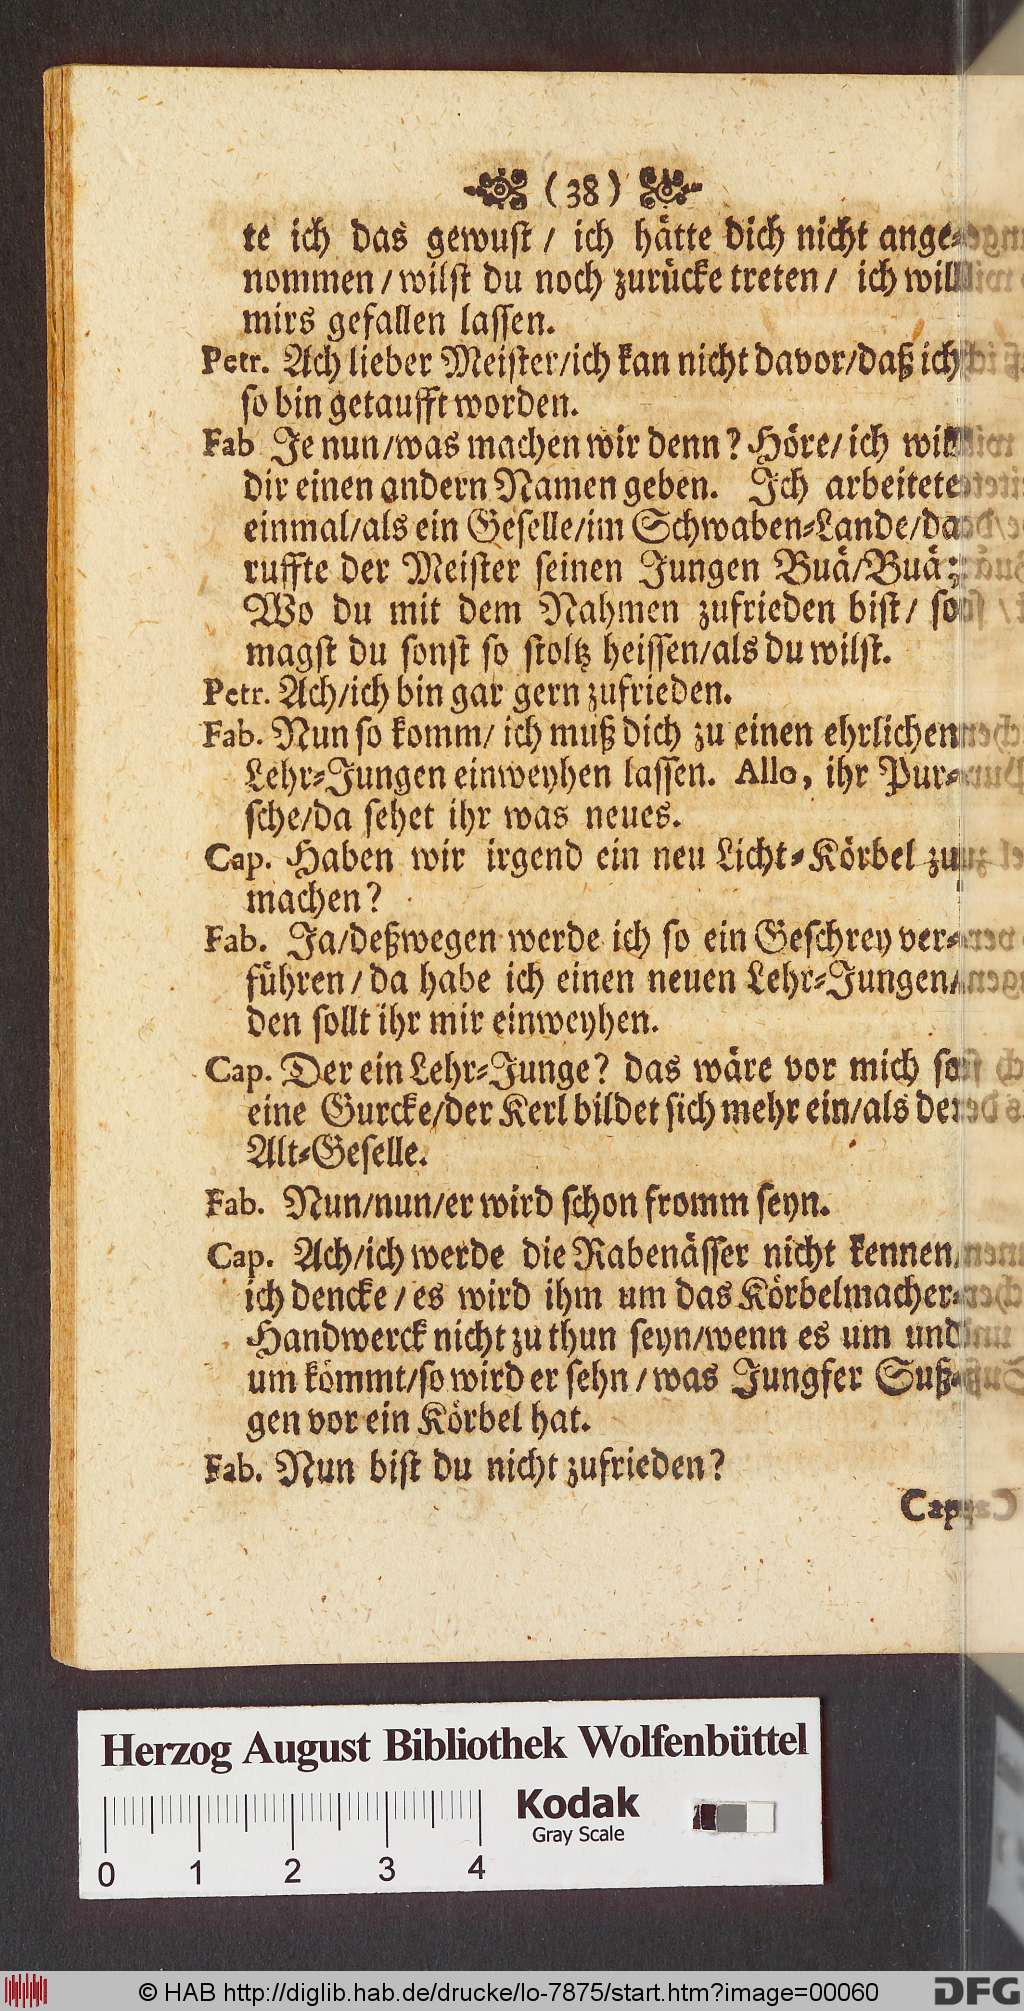 ( 38 )
te ich das gewust / ich hätte dich nicht ange-
nommen / wilst du noch zurücke treten / ich will
mirs gefallen lassen.
Petr. Ach lieber Meister/ich kan nicht davor/daß ich
so bin getaufft worden.
Fab Je nun/was machen wir denn? Höre/ ich will
dir einen andern Namen geben. Ich arbeitete
einmal/als ein Geselle/im Schwaben-Lande/da
ruffte der Meister seinen Jungen Buä/Buä;
Wo du mit dem Nahmen zufrieden bist/ so
magst du sonst so stoltz heissen/als du wilst.
Petr. Ach/ich bin gar gern zufrieden.
Fab. Nun so komm/ ich muß dich zu einen ehrlichen
Lehr-Jungen einweyhen lassen. Allo, ihr Pur-
sche/da sehet ihr was neues.
Cap. Haben wir irgend ein neu Licht-Körbel zu
machen?
Fab. Ja/deßwegen werde ich so ein Geschrey ver-
führen / da habe ich einen neuen Lehr-Jungen/
den sollt ihr mir einweyhen.
Cap. Der ein Lehr-Junge? das wäre vor mich so
eine Gurcke/der Kerl bildet sich mehr ein/als der
Alt-Geselle.
Fab. Nun/nun/er wird schon fromm seyn.
Cap. Ach/ich werde die Rabenässer nicht kennen/
ich dencke / es wird ihm um das Körbelmacher-
Handwerck nicht zu thun seyn/wenn es um und
um kömmt/so wird er sehn / was Jungfer Suß-
gen vor ein Körbel hat.
Fab. Nun bist du nicht zufrieden?
Cap.
Herzog August Bibliothek Wolfenbüttel
Kodak
Gray Scale
0 1 2 3 4
© HAB http://diglib.hab.de/drucke/lo-7875/start.htm?image=00060
DFG